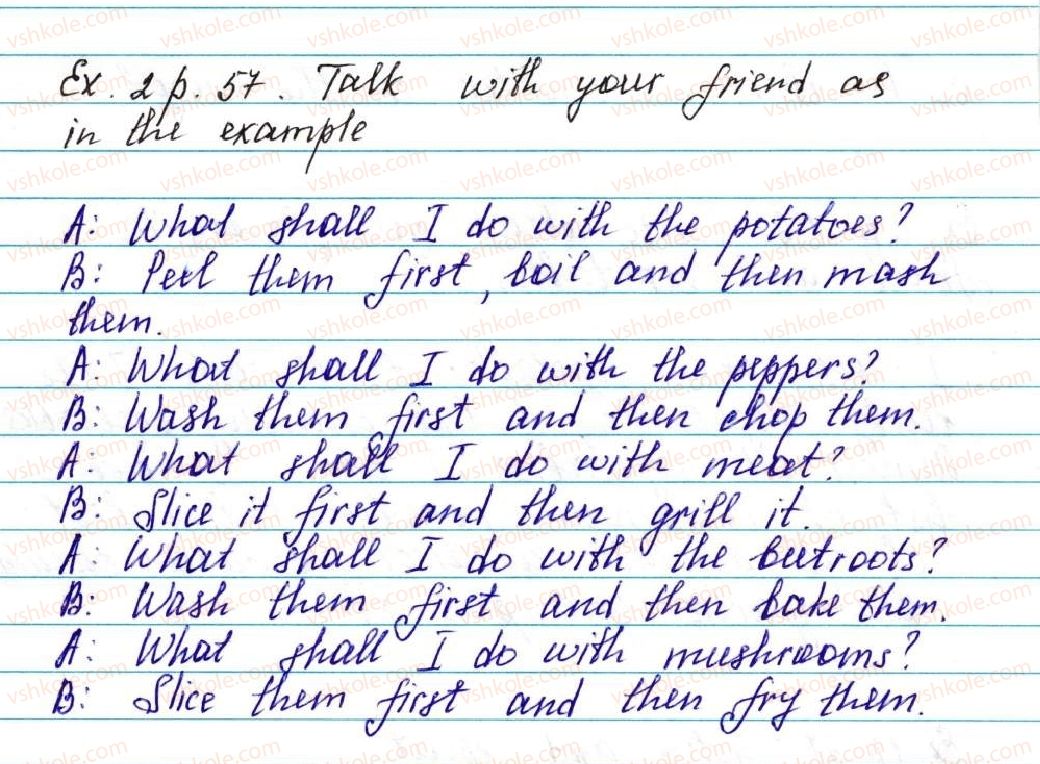 Ex. 2 p. 57. Talk with your friend as
in the example
A: What shall I do with the potatoes?
B: Peel them first, boil and then mash
them.
A: What shall I do with the peppers?
B: Wash them first and then chop them.
A: What shall I do with meat?
B: Slice it first and then grill it.
A: What shall I do with the beetroots?
B: Wash them first and then bake them.
A: What shall I do with mushrooms?
B: Slice them first and then fry them.
vshkole.com